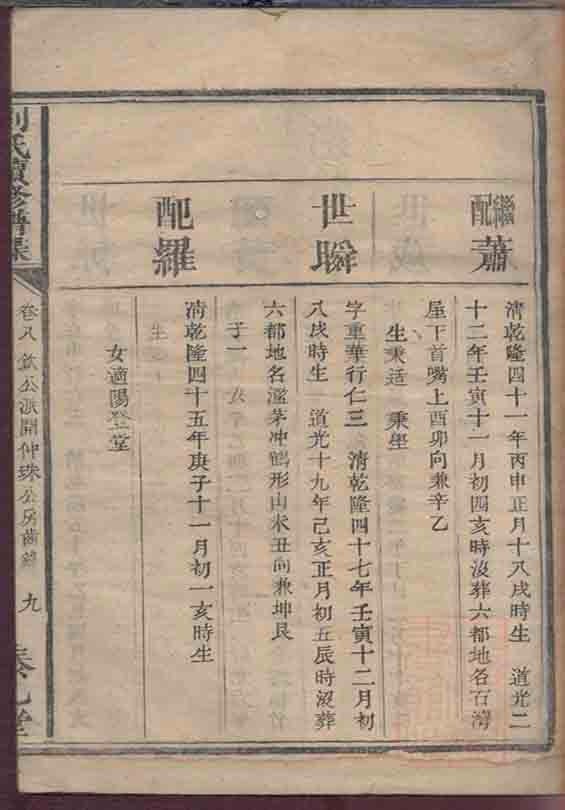 繼配蕭
清乾隆四十一年丙申正月十八戌時生 道光二
十二年壬寅十一月初四亥時没葬六都地名石灣
屋下首嘴上酉卯向兼辛乙
生秉适 秉堊
世瞬
字重華行仁三 清乾隆四十七年壬寅十二月初
八戌時生 道光十九年己亥正月初五辰時没葬
六都地名 茅冲鶴形山未丑向兼坤艮
子一
配羅
清乾隆四十五年庚子十一月初一亥時生
女適陽登堂
劉氏續修譜
卷八 欽公派開仲珠公房齒錄 九
堂